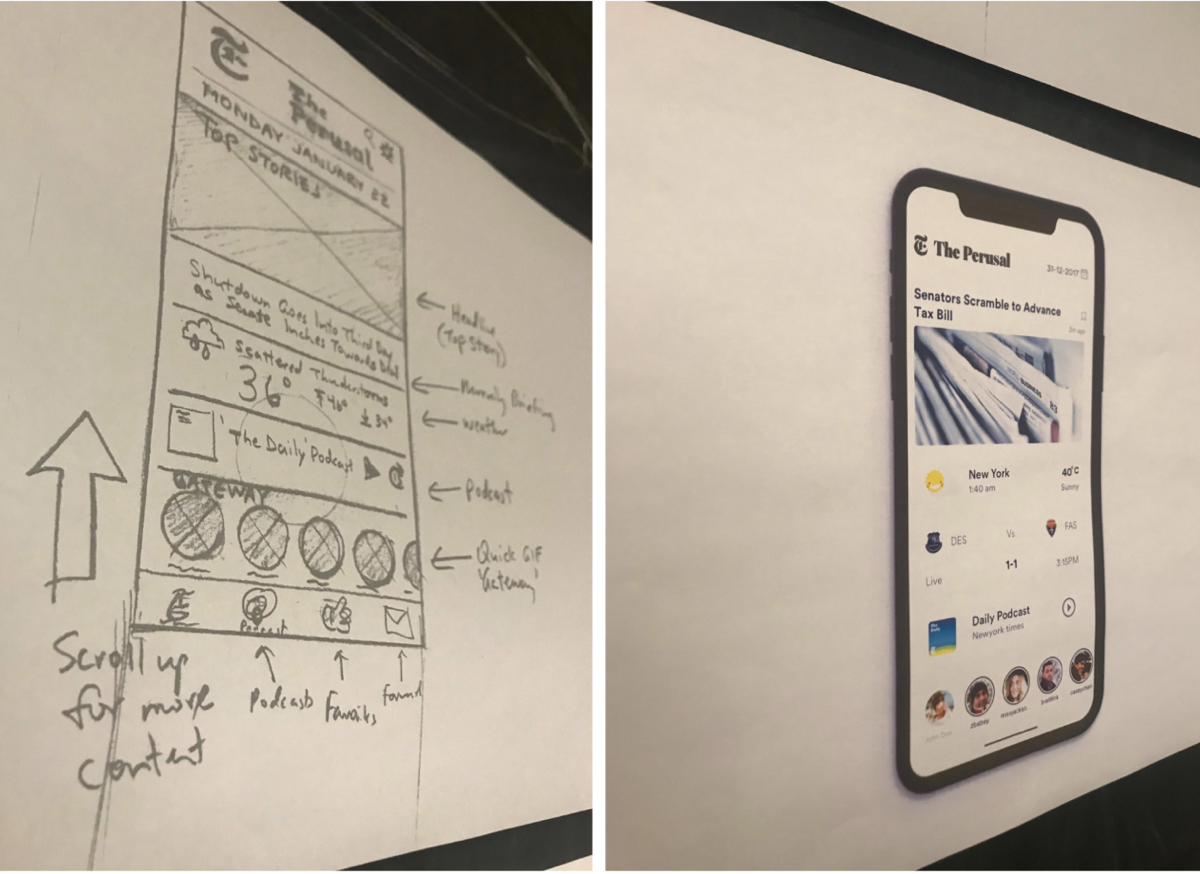 The
Perusal
MONDAY JANUARY 22
TOP STORIES
Shutdown Goes Into Third Day
as Senate Inches Towards Deal
Scattered Thunderstorms
36° 46° 34°
'The Daily' Podcast
GATEWAY
Podcast
Headline
(Top Story)
Morning Briefing
Weather
Podcast
Quick GIF
'Gateway'
Podcasts
Favorites
Scroll up
for more
content
The Perusal
31-12-2017
Senators Scramble to Advance
Tax Bill
2m ago
BUSINESS
New York
40°C
1:40 am
Sunny
DES
Vs
FAS
1-1
3:15PM
Live
Daily Podcast
Newyork times
John Doe